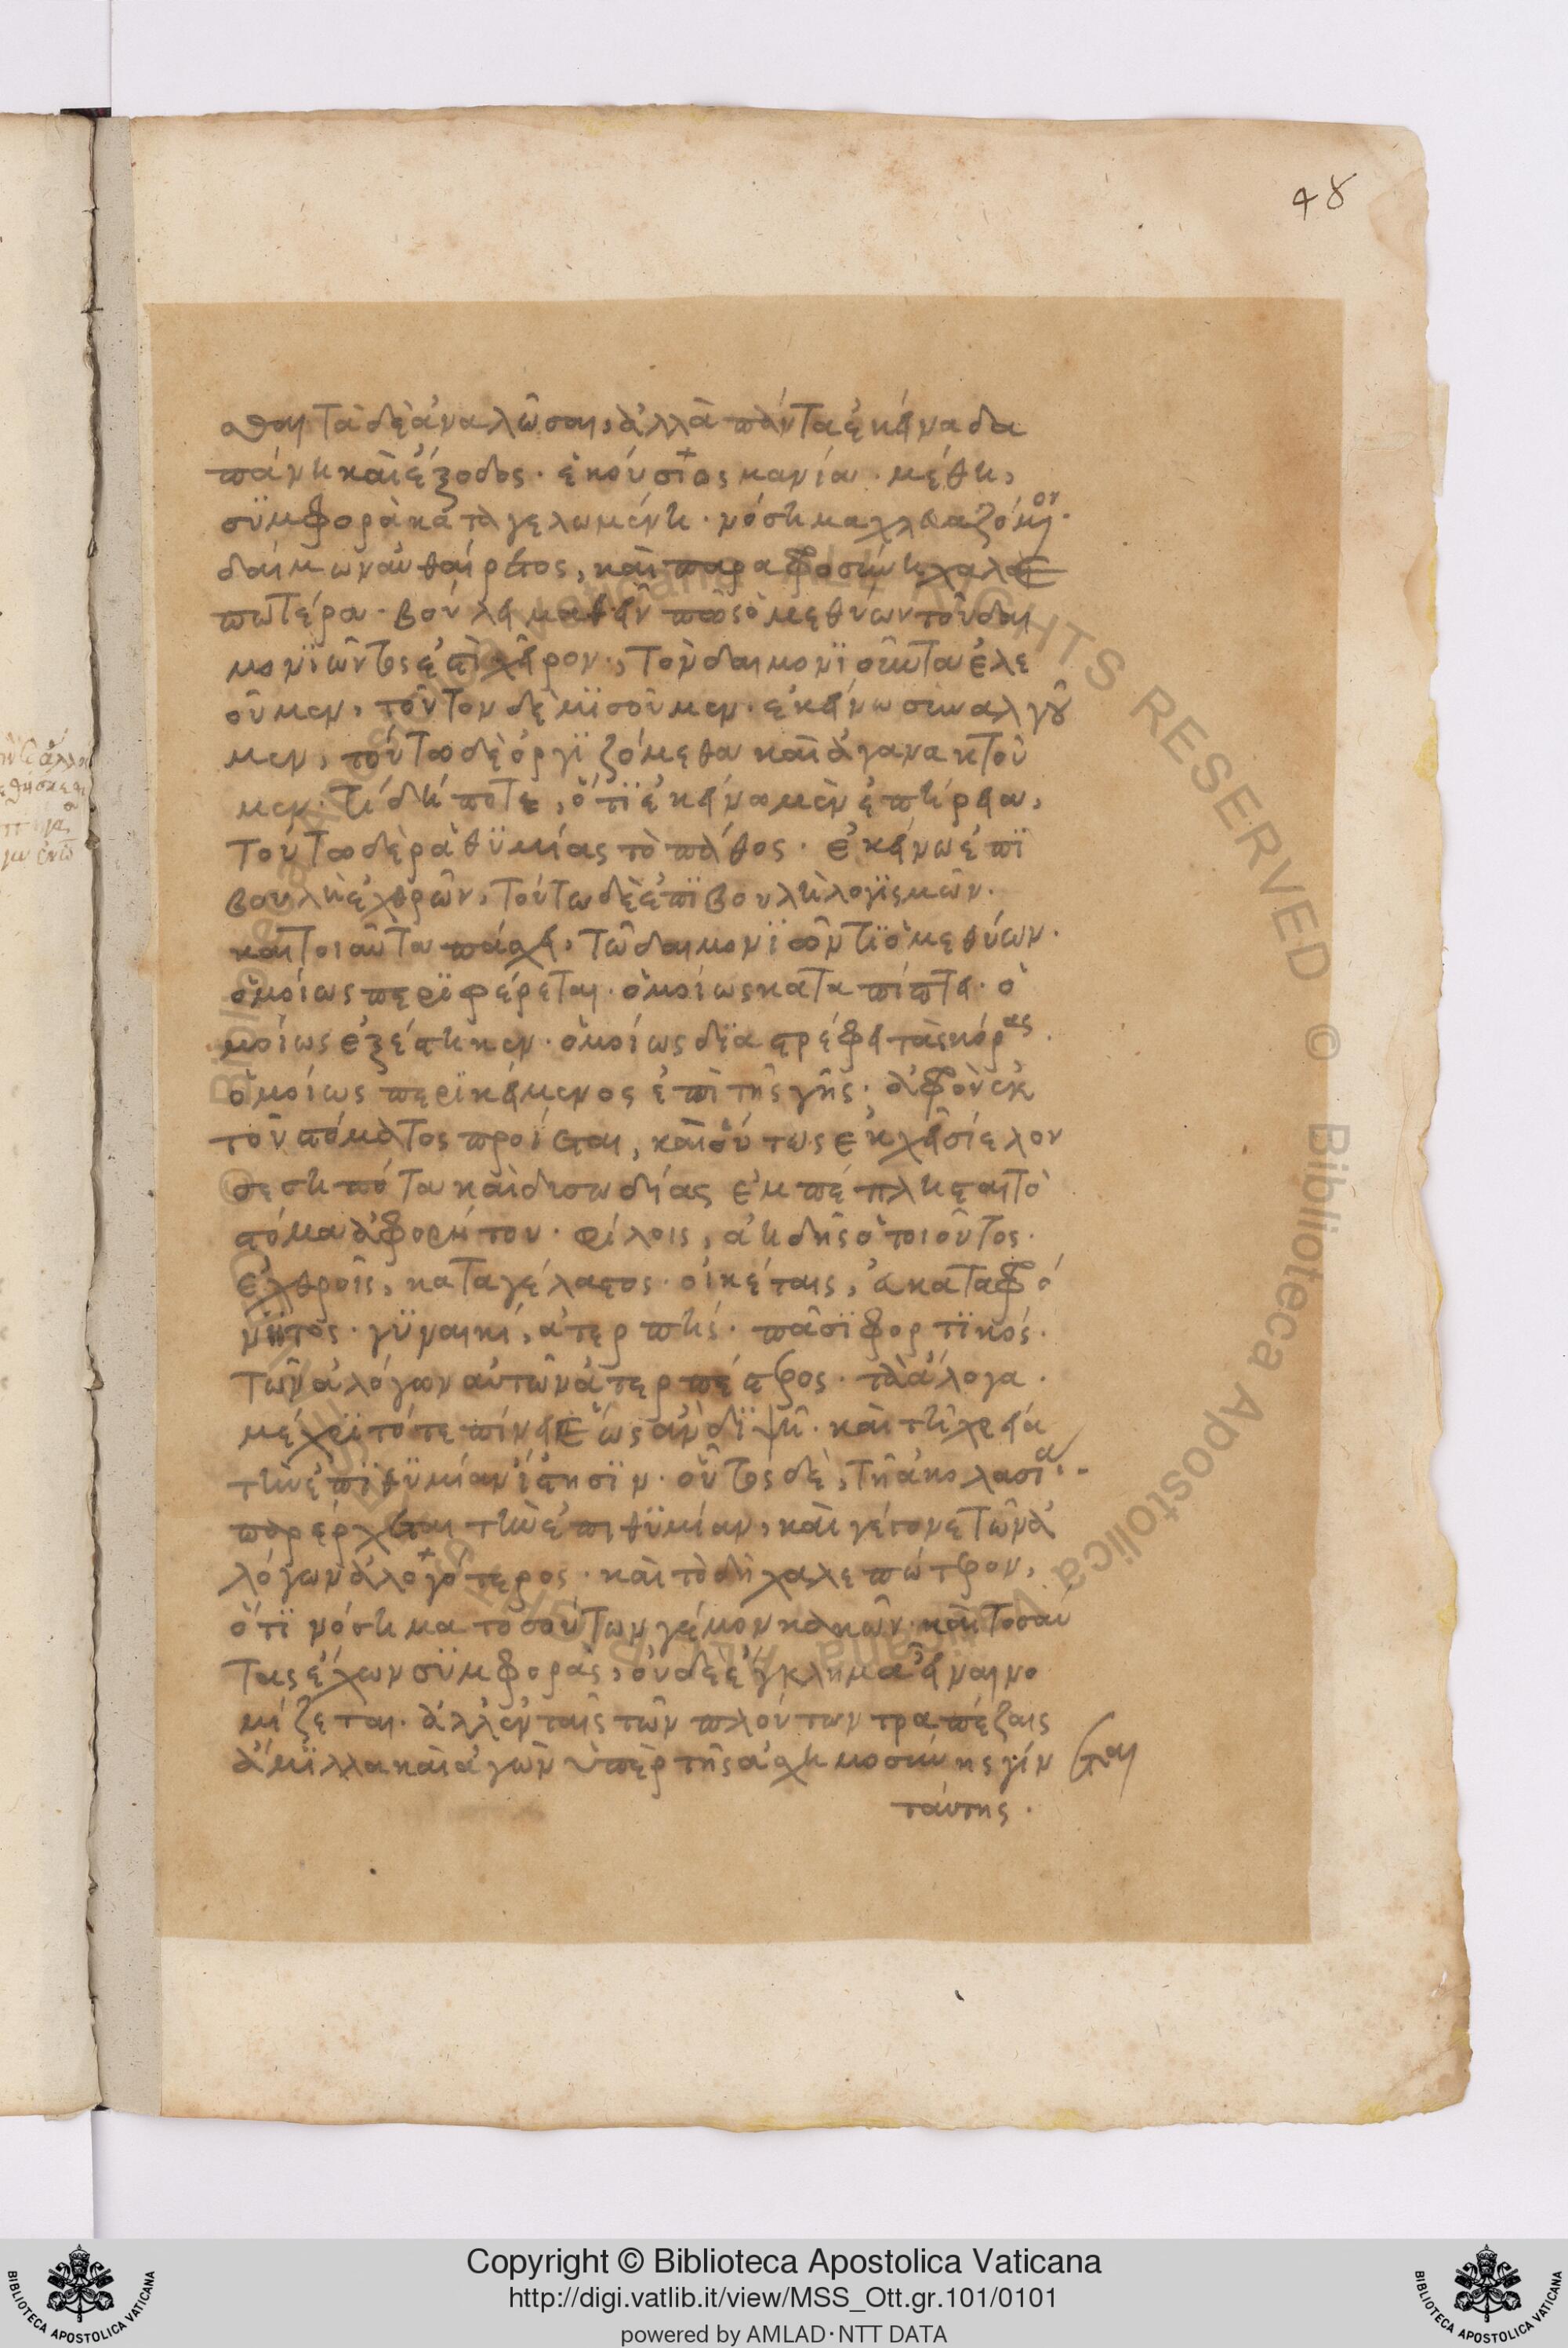 48
σθαι τὰ δὲ ἀναλῶσαι, ἀλλὰ πάντα ἐκεῖνα δα
πάνη καὶ ἔξοδος. ἑκούσιος μανία. μέθη,
σϋμφορὰ καταγελωμένη. νόσημα χλευαζόμενον.
δαίμων αὐθαίρετος, καὶ παραφροσύνη χαλε
πωτέρα. βούλει μαθεῖν πῶς ὁ μεθύων τοῦ δαι
μονϊῶντος ἐστὶ χεῖρον, τὸν δαιμονϊῶντα ἐλε
οῦμεν, τοῦτον δὲ μϊσοῦμεν. ἐκείνω συναλγοῦ
μεν, τούτω δὲ ὀργϊζόμεθα καὶ ἀγανακτοῦ
μεν. τί δή ποτε, ὅτϊ ἐκείνω μὲν ἐπήρεια,
τούτω δὲ ῥαθϋμίας τὸ πάθος. ἐκείνω ἐπϊ
βουλὴ ἐχθρῶν, τούτω δὲ ἐπϊβουλὴ λογϊσμῶν.
καὶ τοιαῦτα πάσχει, τῶ δαιμονϊῶντϊ ὁ μεθύων.
ὁμοίως περϊφέρεται. ὁμοίως καταπίπτει. ὁ
μοίως ἐξέστηκεν. ὁμοίως δϊαστρέφει τὰς κόρας.
ὁμοίως περϊκείμενος ἐπὶ τῆς γῆς. ἀφρὸν ἐκ
τοῦ στόματος προΐεται, καὶ οὕτως ἐκχεῖ σίελον
σεσηπότα καὶ δυσωδίας ἐμπέπλησται τὸ
στόμα ἀφορήτου. φίλοις, ἀηδὴς ὁ τοιοῦτος.
ἐχθροῖς, καταγέλαστος. οἰκέταις, εὐκαταφρό
νητος. γϋναικὶ, ἀτερπής. πᾶσϊ φορτϊκός.
τῶν ἀλόγων αὐτῶν ἀτερπέστερος. τὰ ἄλογα.
μέχρϊ τότε πίνει ἕως ἂν δϊψῆ. καὶ τῆ χρεία
τὴν ἐπϊθϋμίαν ἵστησϊν. οὗτος δὲ, τῆ ἀκολασία.
παρέρχεται τὴν ἐπιθϋμίαν, καὶ γέγονε τῶν ἀ
λόγων ἀλογώτερος. καὶ τὸ δὴ χαλεπώτερον,
ὅτϊ νόσημα τοσούτων γέμον κακῶν. καὶ τοσαύ
τας ἔχων σϋμφορὰς, οὐδὲ ἔγκλημα εἶναι νο
μίζεται. ἀλλ' ἐν ταῖς τῶν πλούτων τραπέζαις
ἅμϊλλα καὶ ἀγὼν ὑπὲρ τῆς ἀσχημοσύνης γίνεται
ταύτης.
Copyright © Biblioteca Apostolica Vaticana
http://digi.vatlib.it/view/MSS_Ott.gr.101/0101
powered by AMLAD·NTT DATA
BIBLIOTECA APOSTOLICA VATICANA
BIBLIOTECA APOSTOLICA VATICANA